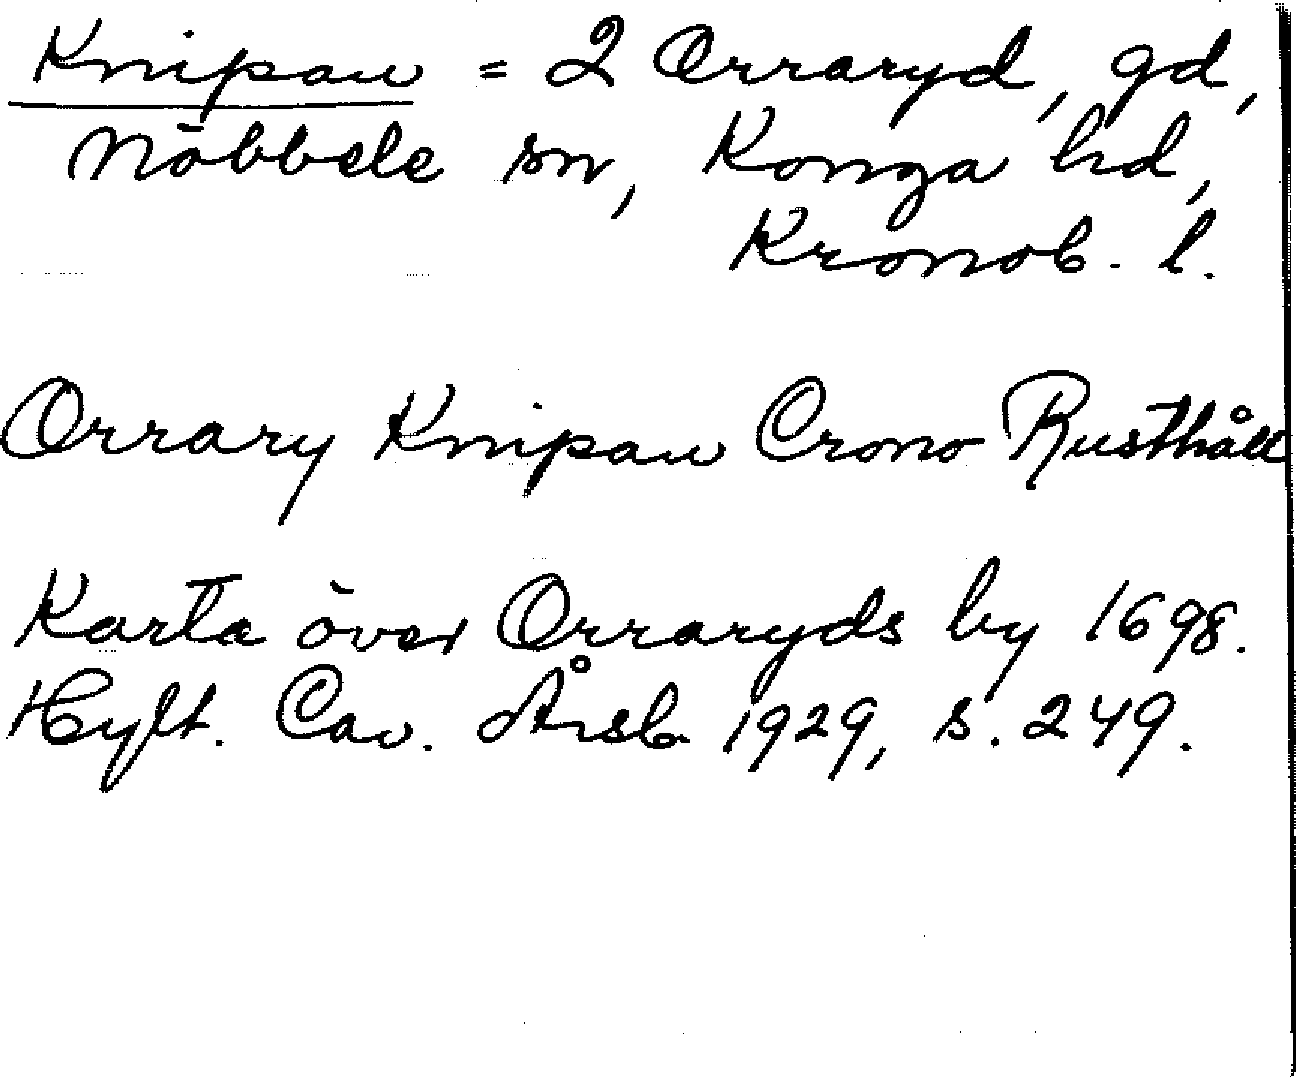 Knipan = 2 Orraryd, gd,
Nöbbele sn, Konga hd,
Kronob. l.
Orrary Knipan Crono Rusthåll
Karta över Orraryds by 1698.
Hylt. Cav. Årsb. 1929, s. 249.